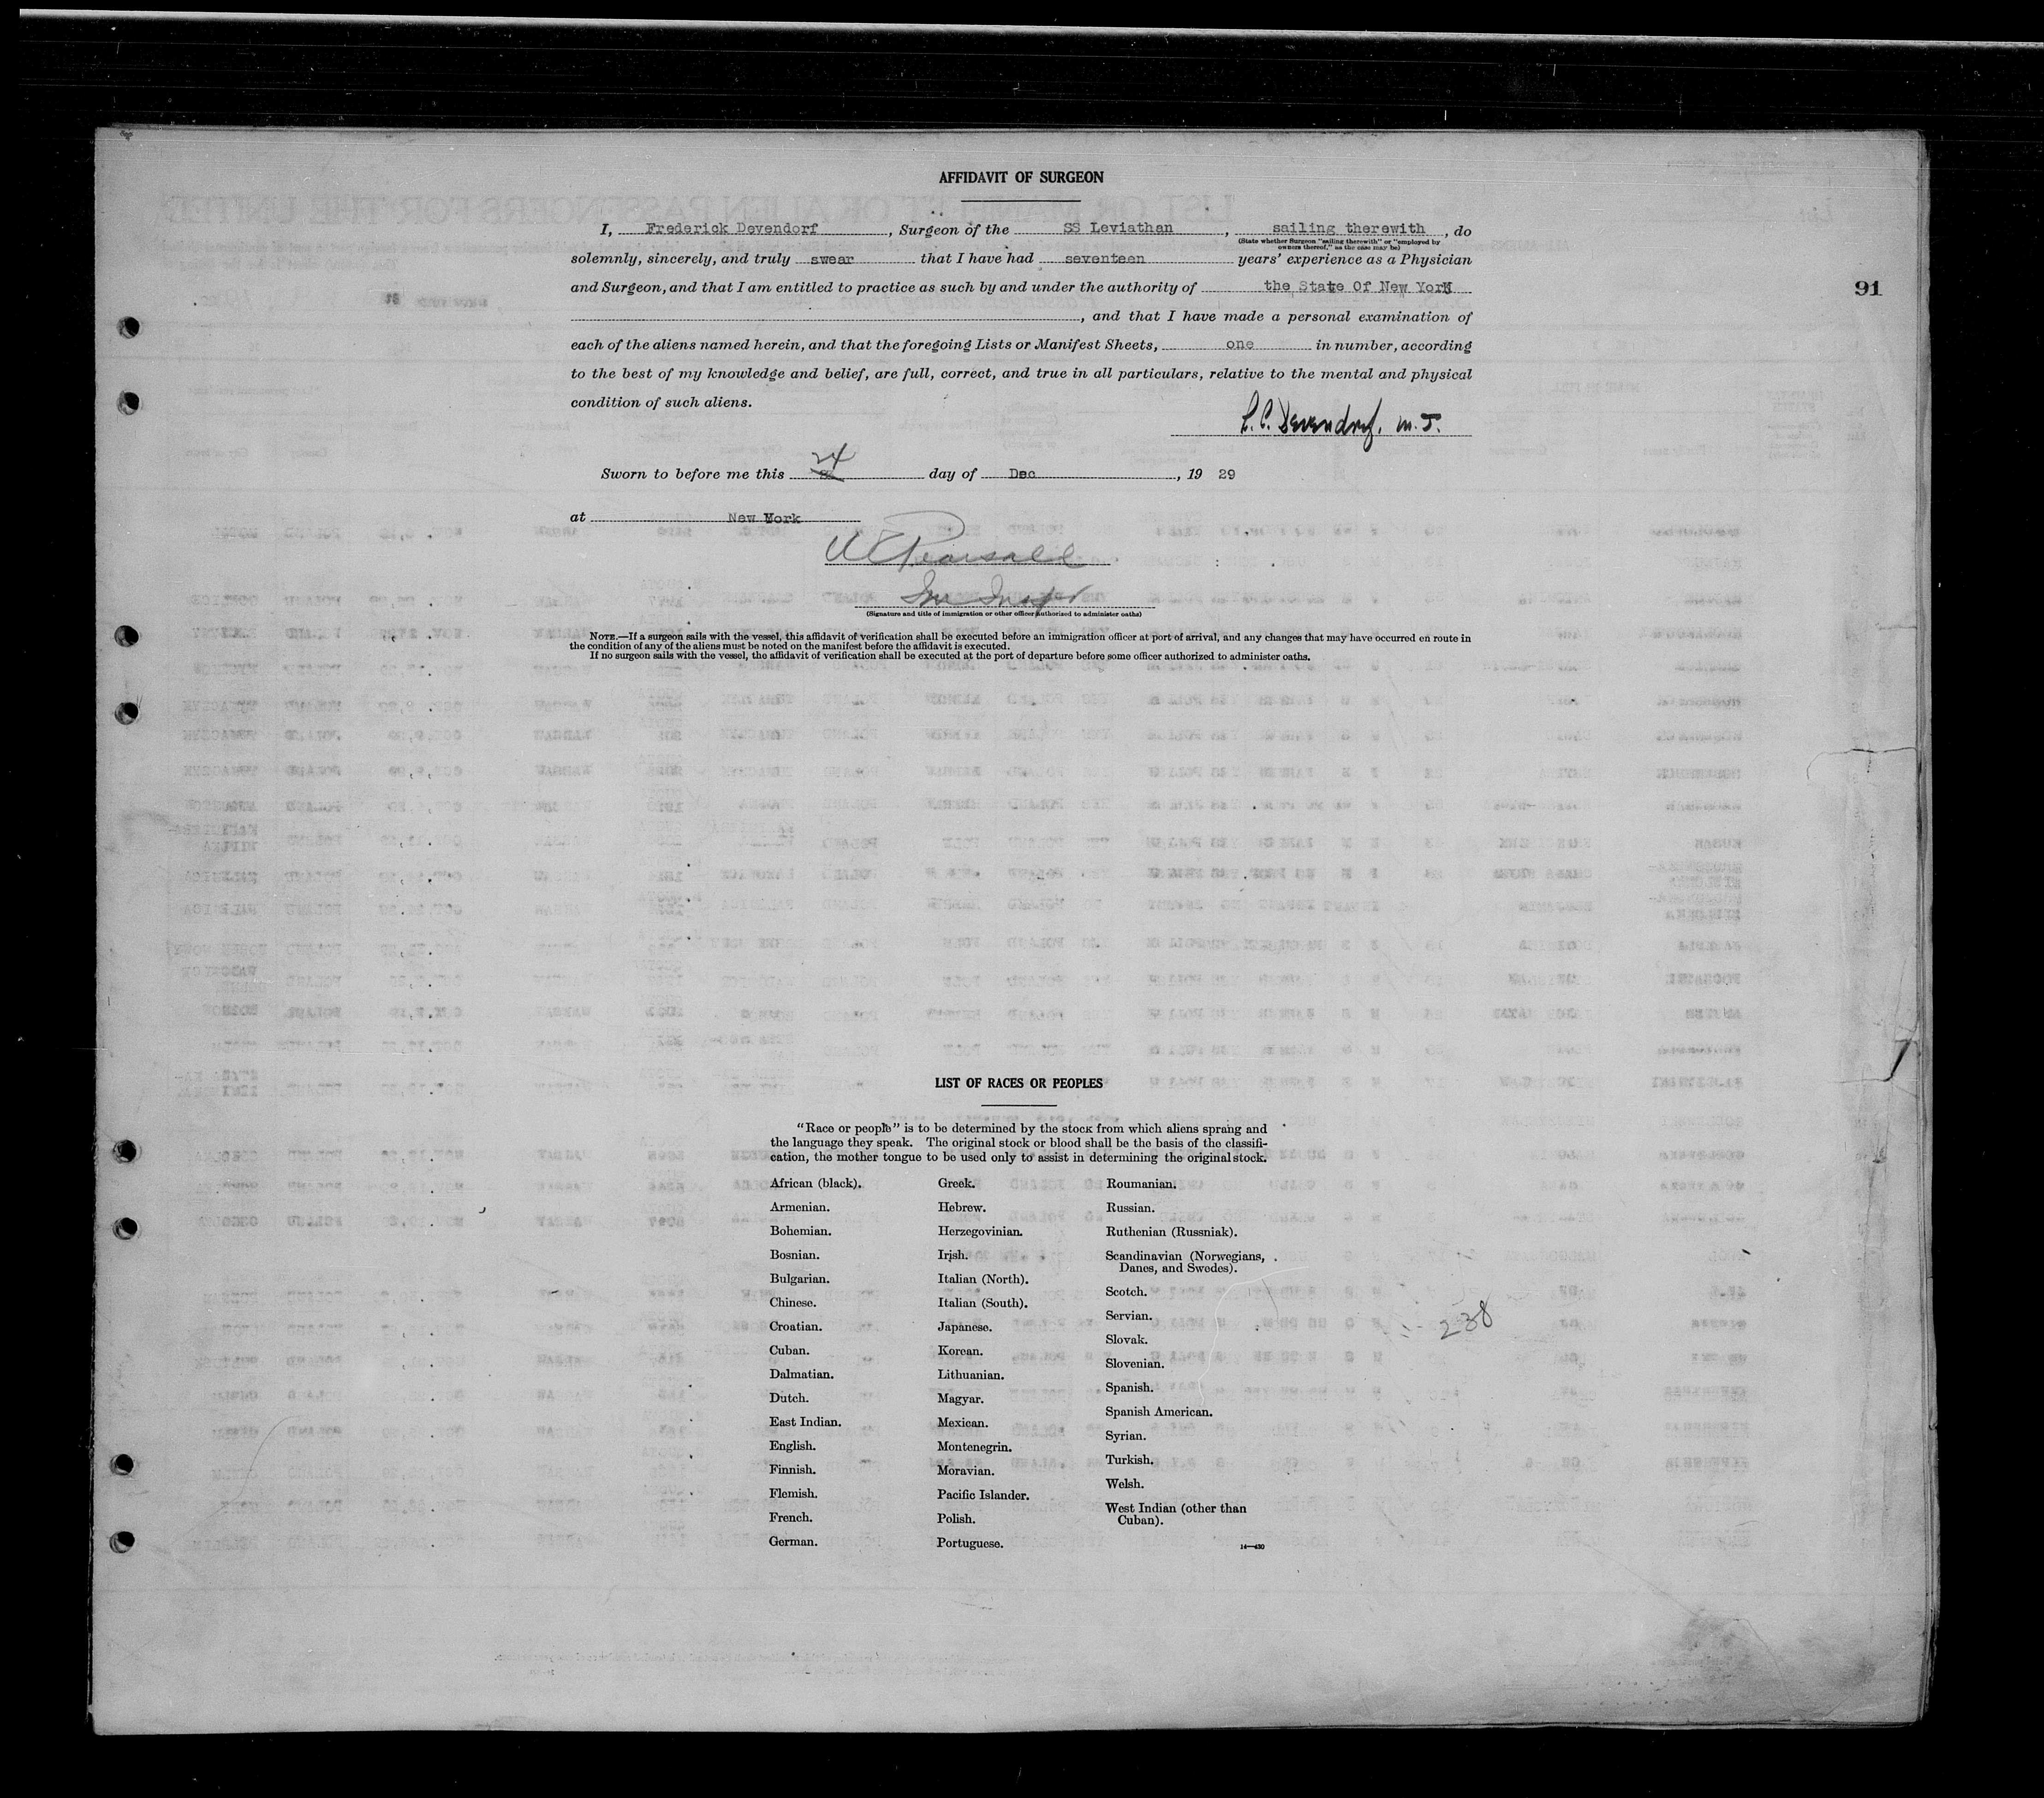 AFFIDAVIT OF SURGEON
I, Frederick Devendorf, Surgeon of the SS Leviathan, sailing therewith, do
(State whether Surgeon "sailing therewith" or "employed by
owners thereof," as the case may be)
solemnly, sincerely, and truly swear that I have had seventeen years' experience as a Physician
and Surgeon, and that I am entitled to practice as such by and under the authority of the State Of New York
91
, and that I have made a personal examination of
each of the aliens named herein, and that the foregoing Lists or Manifest Sheets, one in number, according
to the best of my knowledge and belief, are full, correct, and true in all particulars, relative to the mental and physical
condition of such aliens.
Devendorf, M.D.
Sworn to before me this 24 day of Dec, 19 29
at New York
Pearsall
(Signature and title of immigration or other officer authorized to administer oaths)
NOTE.—If a surgeon sails with the vessel, this affidavit of verification shall be executed before an immigration officer at port of arrival, and any changes that may have occurred en route in
the condition of any of the aliens must be noted on the manifest before the affidavit is executed.
If no surgeon sails with the vessel, the affidavit of verification shall be executed at the port of departure before some officer authorized to administer oaths.
LIST OF RACES OR PEOPLES
"Race or people" is to be determined by the stock from which aliens sprang and
the language they speak. The original stock or blood shall be the basis of the classifi-
cation, the mother tongue to be used only to assist in determining the original stock.
African (black).
Armenian.
Bohemian.
Bosnian.
Bulgarian.
Chinese.
Croatian.
Cuban.
Dalmatian.
Dutch.
East Indian.
English.
Finnish.
Flemish.
French.
German.
Greek.
Hebrew.
Herzegovinian.
Irish.
Italian (North).
Italian (South).
Japanese.
Korean.
Lithuanian.
Magyar.
Mexican.
Montenegrin.
Moravian.
Pacific Islander.
Polish.
Portuguese.
Roumanian.
Russian.
Ruthenian (Russniak).
Scandinavian (Norwegians,
Danes, and Swedes).
Scotch.
Servian.
Slovak.
Slovenian.
Spanish.
Spanish American.
Syrian.
Turkish.
Welsh.
West Indian (other than
Cuban).
14—430
238